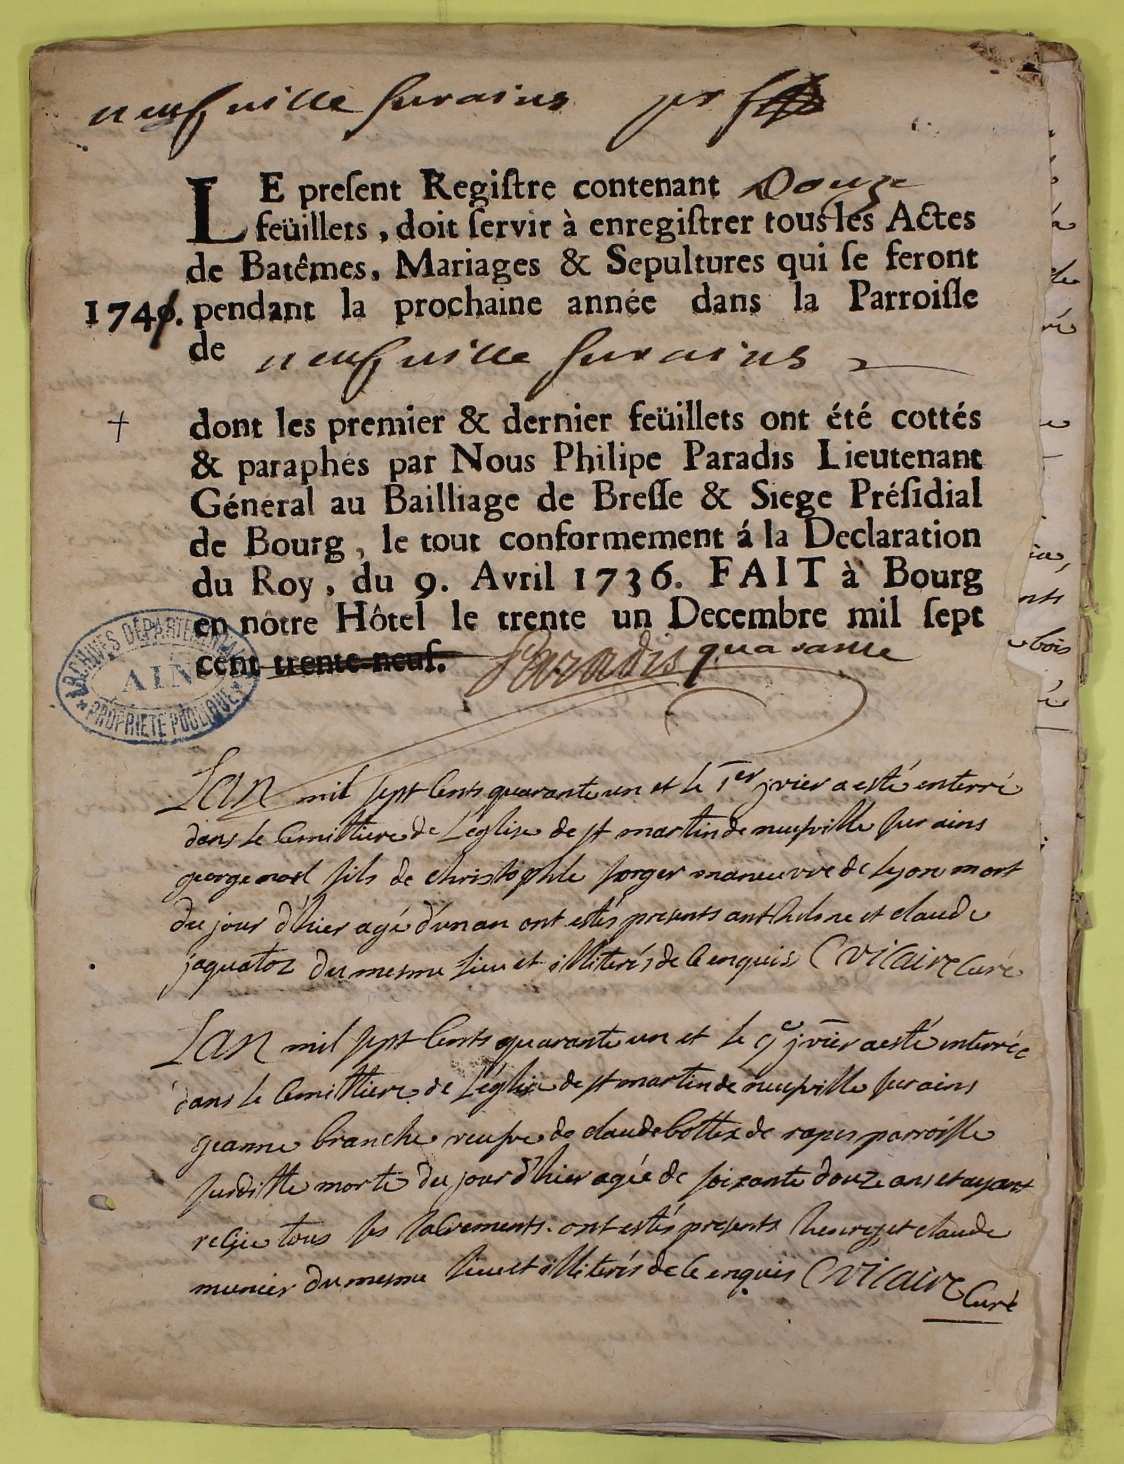 neufville sur ains pr f
LE preſent Regiſtre contenant Douze
feüillets, doit ſervir à enregiſtrer tous les Actes
de Batêmes, Mariages & Sepultures qui ſe feront
1741. pendant la prochaine année dans la Parroiſſe
de neufville sur ains
dont les premier & dernier feüillets ont été cottés
& paraphés par Nous Philipe Paradis Lieutenant
Général au Bailliage de Breſſe & Siege Préſidial
de Bourg, le tout conformement á la Declaration
du Roy, du 9. Avril 1736. FAIT à Bourg
en nôtre Hôtel le trente un Decembre mil ſept
cent trente-neuf. Paradis quarante
ARCHIVES DÉPARTEMENTALES
AIN
PROPRIÉTÉ PUBLIQUE
Lan mil sept Cents quarante un et le 1er jvier a esté enterré
dans le Cemittiere de Leglise de st martin de neufville sur ains
george noel fils de christophle forger maneuvre de Lyon mort
du jour d'hier agé d'un an ont estés presents anthelme et claude
jaquetoz du mesme lieu et illiterés de ce enquis C vicaire Curé
Lan mil sept Cents quarante un et le 9e jvier a esté enterrée
dans le Cemittiere de Leglise de st martin de neufville sur ains
jeanne branche veufve de claude bottex de rapes parroisse
susditte morte du jour d'hier agée de soixante douze ans et ayant
reçue tous ses sacrements. ont estés presents henry et claude
munier du mesme lieu et illiterés de ce enquis C vicaire Curé